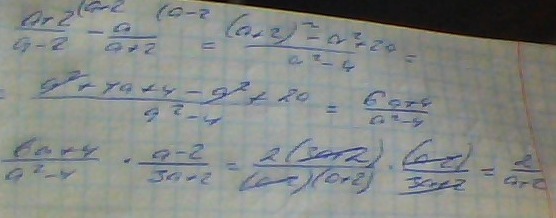 (a+2 (a-2
a+2/a-2 - a/a+2 = (a+2)² - a² + 2a/a²-4 =
= a² + 4a + 4 - a² + 2a/a²-4 = 6a+4/a²-4
6a+4/a²-4 · a-2/3a+2 = 2(3a+2)/(a-2)(a+2) · (a-2)/3a+2 = 2/a+2